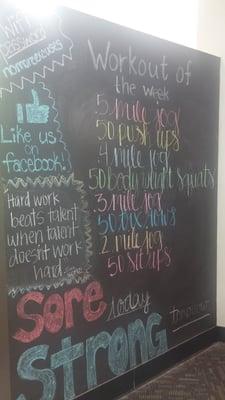 WiFi
password
nomoreexcuses
Like us
on
facebook!
Hard work
beats talent
when talent
doesn't work
hard.
Workout of
the week
.5 mile jog
50 push ups
.4 mile jog
50 bodyweight squats
.3 mile jog
50 box jumps
.2 mile jog
50 sit ups
Sore today
Strong tomorrow